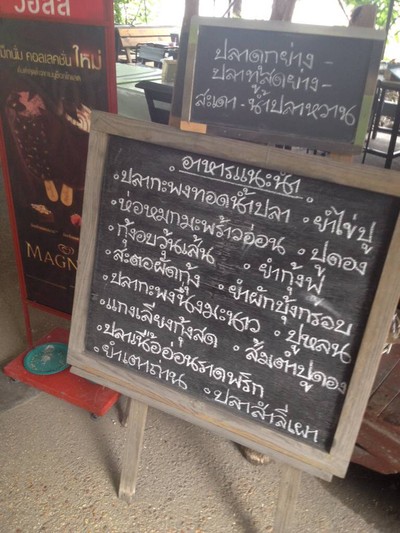 วอลล์
แม็กนั่ม คอลเลคชั่น ใหม่
MAGN
ปลาดุกย่าง -
ปลาทูสดย่าง -
สะเดา - น้ำปลาหวาน
อาหารแนะนำ
• ปลากะพงทอดน้ำปลา • ยำไข่ปู
• ห่อหมกมะพร้าวอ่อน • ปูดอง
• กุ้งอบวุ้นเส้น • ยำกุ้งฟู
• สะตอผัดกุ้ง • ยำผักบุ้งกรอบ
• ปลากะพงนึ่งมะนาว • ปูหลน
• แกงเลียงกุ้งสด • ส้มตำปูดอง
• ปลาเนื้ออ่อนราดพริก
• ยำเตาถ่าน • ปลาสำลีเผา